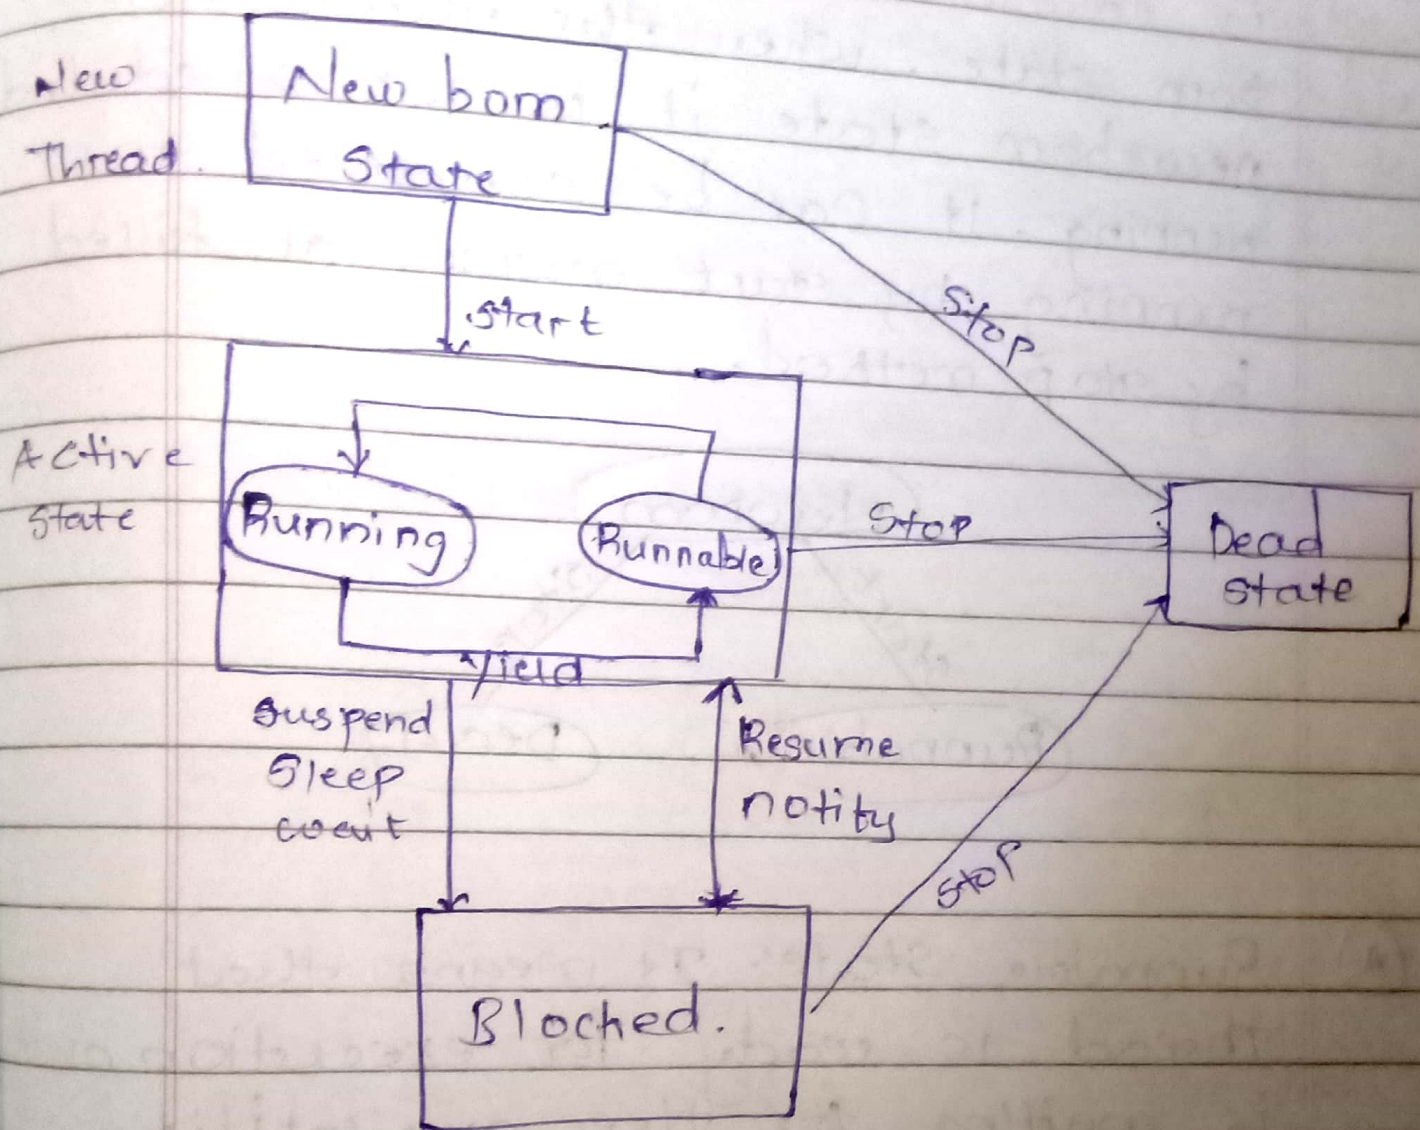 New
Thread.
New born
State
Stop
start
Active
state
Running
Runnable
Stop
Dead
state
yield
Suspend
Sleep
wait
Resume
notity
Stop
Bloched.